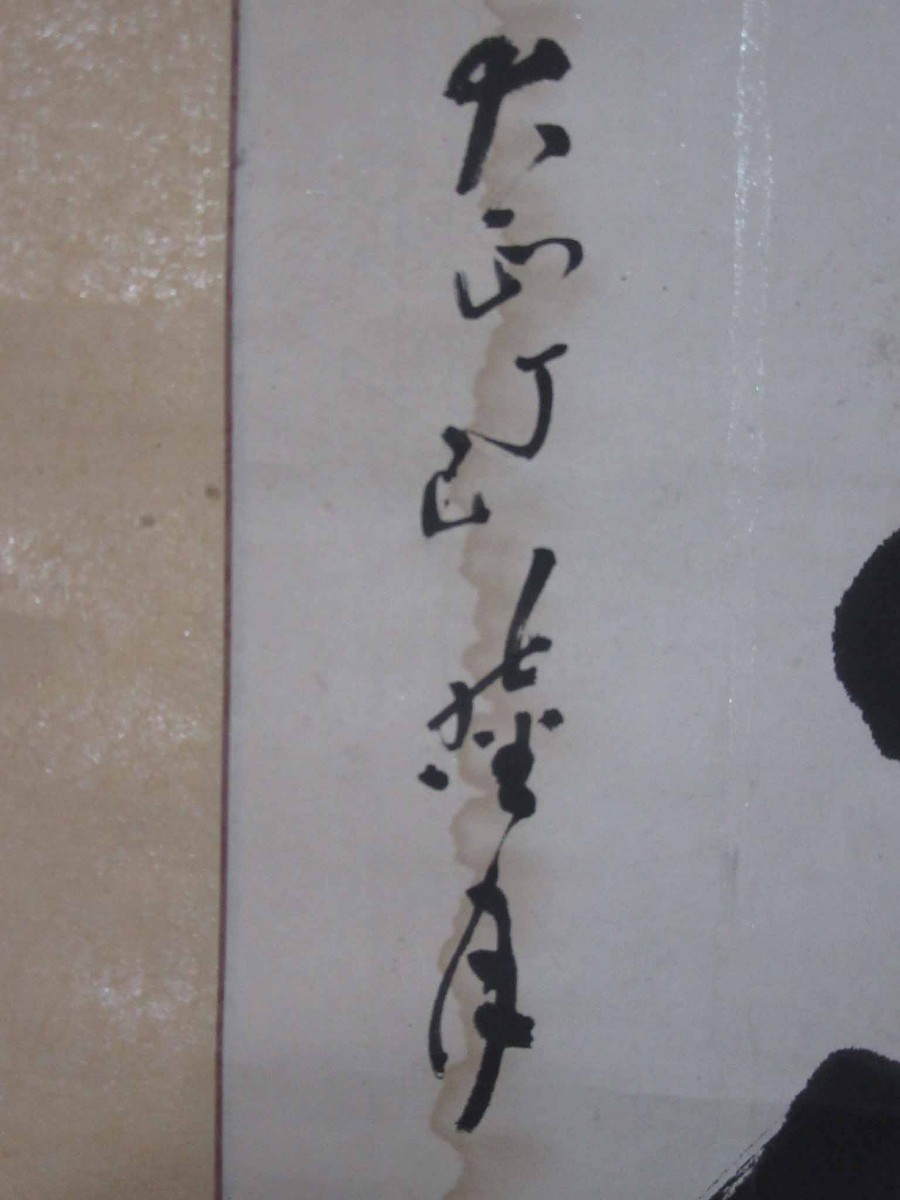 大正丁巳月